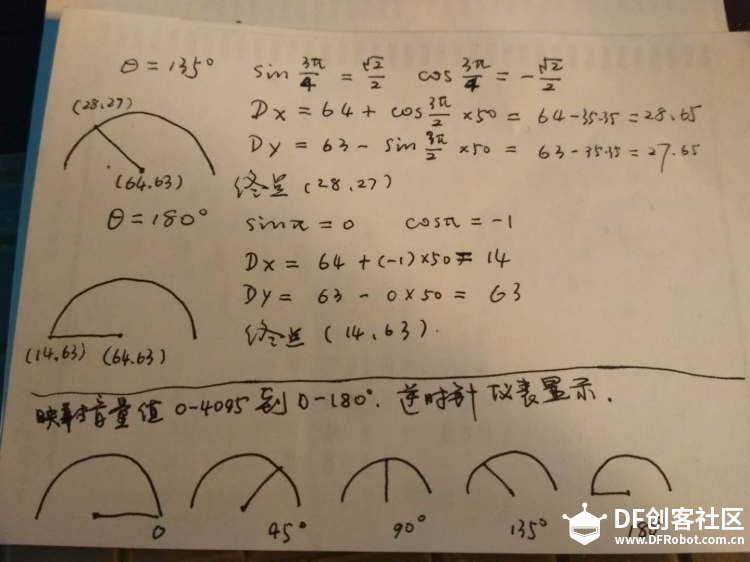 θ = 135° sin 3π/4 = √2/2 cos 3π/4 = -√2/2
(28,27)
Dx = 64 + cos 3π/2 ×50 = 64-35.35 = 28.65
Dy = 63 - sin 3π/2 ×50 = 63-35.35 = 27.65
(64,63) 终点 (28,27)
θ = 180° sinπ = 0 cosπ = -1
Dx = 64 + (-1)×50 = 14
Dy = 63 - 0×50 = 63
终点 (14,63).
(14,63) (64.63)
映射音量值 0-4095 到 0-180°. 逆时针 仪表显示.
0 45° 90° 135° 180°
DF创客社区
www.DFRobot.com.cn